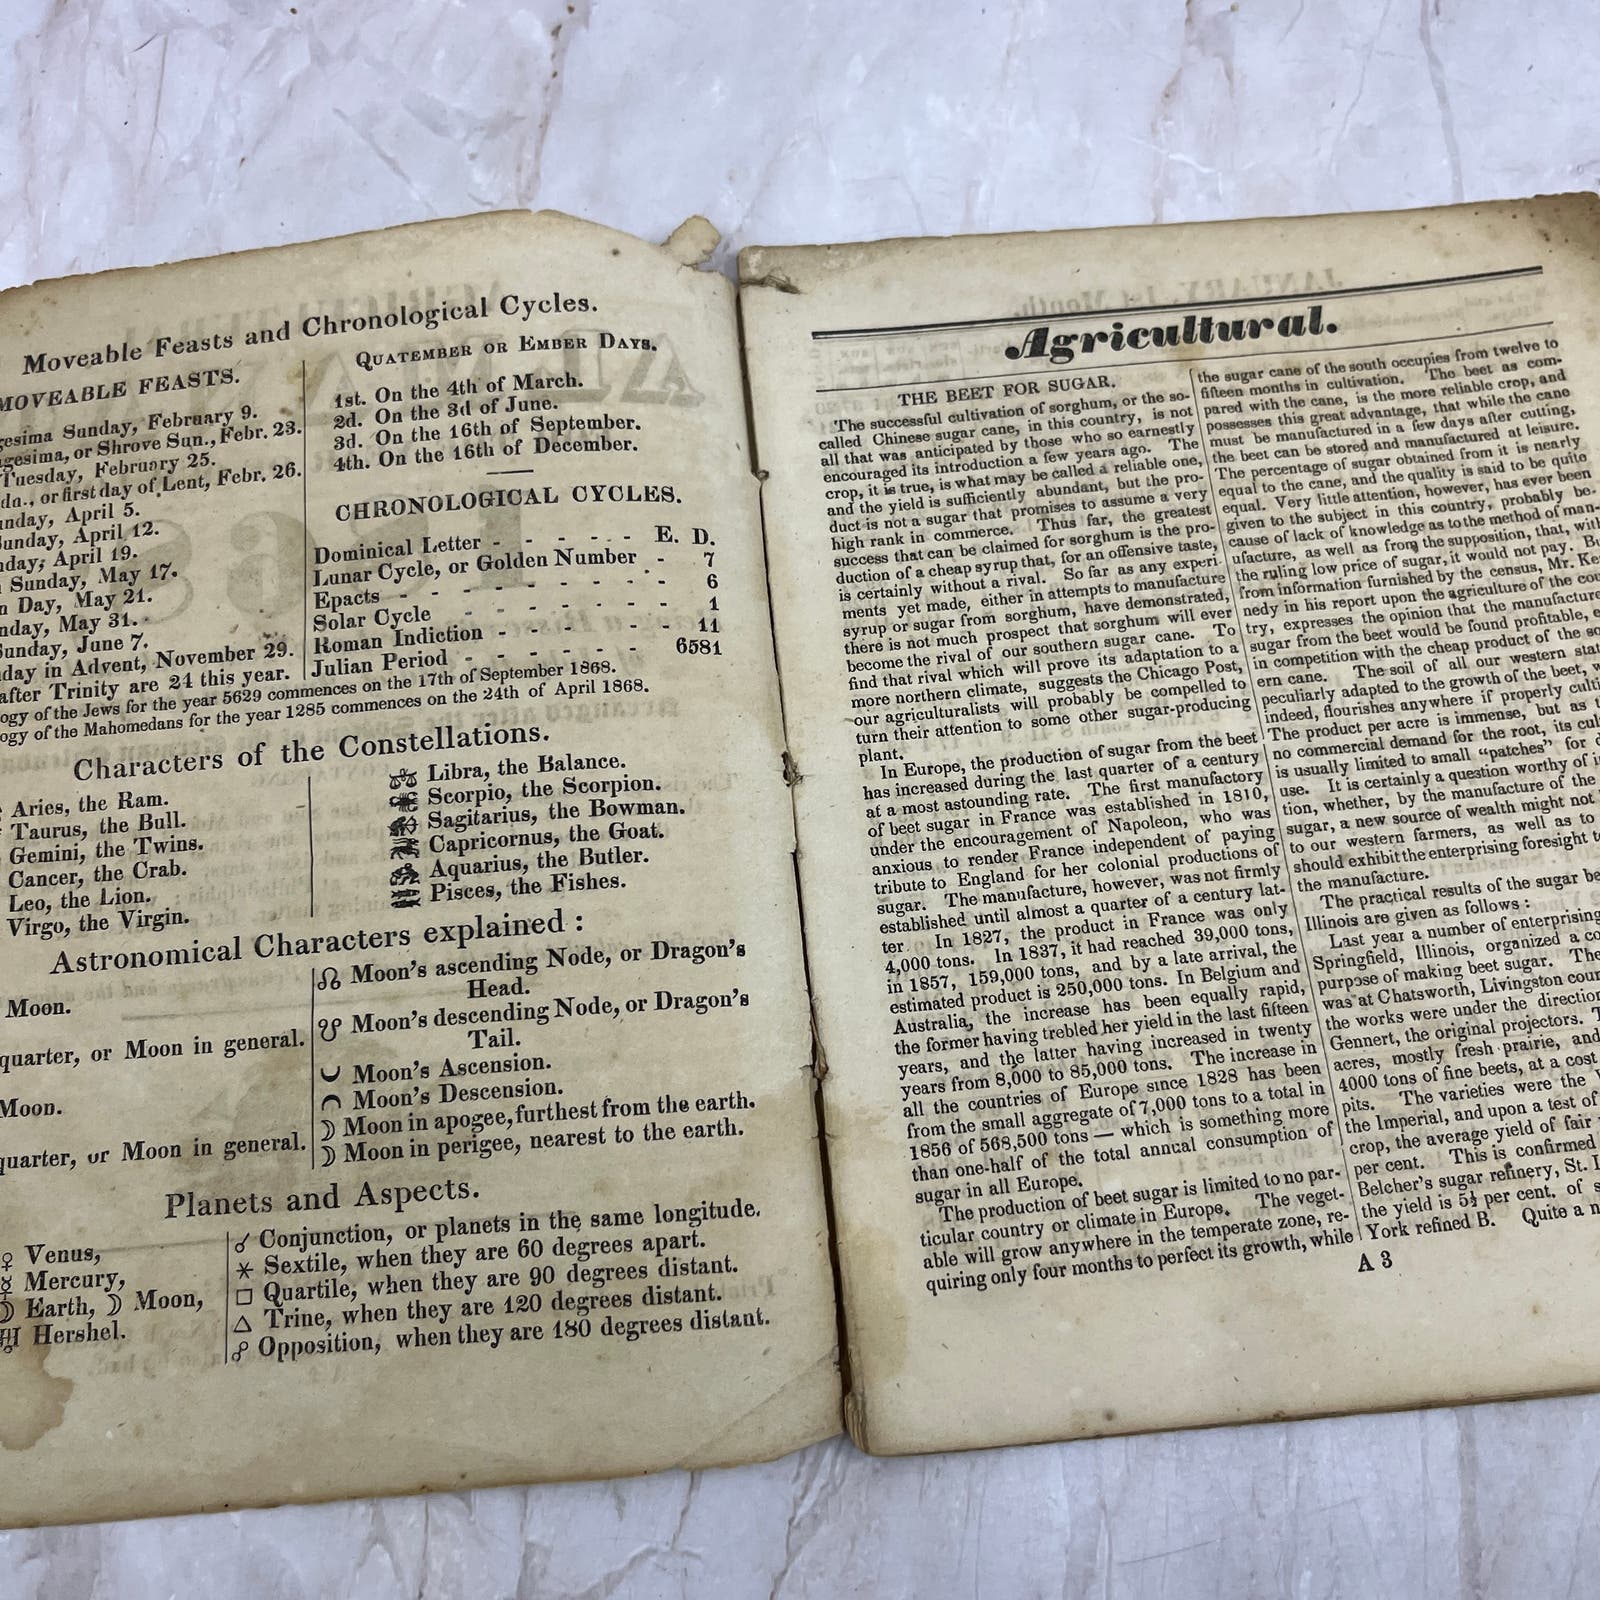 Moveable Feasts and Chronological Cycles.
MOVEABLE FEASTS.
Sunday, February 9.
or Shrove Sun., Febr. 23.
Tuesday, February 25.
or first day of Lent, Febr. 26.
April 5.
Sunday, April 12.
April 19.
Sunday, May 17.
Day, May 21.
May 31.
Sunday, June 7.
in Advent, November 29.
after Trinity are 24 this year.
QUATEMBER OR EMBER DAYS.
1st. On the 4th of March.
2d. On the 3d of June.
3d. On the 16th of September.
4th. On the 16th of December.
CHRONOLOGICAL CYCLES.
Dominical Letter - - - - - E. D.
Lunar Cycle, or Golden Number - 7
Epacts - - - - - - - 6
Solar Cycle - - - - - 1
Roman Indiction - - - - - 11
Julian Period - - - - - - 6581
of the Jews for the year 5629 commences on the 17th of September 1868.
of the Mahomedans for the year 1285 commences on the 24th of April 1868.
Characters of the Constellations.
Aries, the Ram.
Taurus, the Bull.
Gemini, the Twins.
Cancer, the Crab.
Leo, the Lion.
Virgo, the Virgin.
Libra, the Balance.
Scorpio, the Scorpion.
Sagitarius, the Bowman.
Capricornus, the Goat.
Aquarius, the Butler.
Pisces, the Fishes.
Astronomical Characters explained :
Moon.
quarter, or Moon in general.
Moon.
quarter, or Moon in general.
☊ Moon's ascending Node, or Dragon's
Head.
☋ Moon's descending Node, or Dragon's
Tail.
Moon's Ascension.
Moon's Descension.
☽ Moon in apogee, furthest from the earth.
☽ Moon in perigee, nearest to the earth.
Planets and Aspects.
♀ Venus,
☿ Mercury,
Earth, ☽ Moon,
♅ Hershel.
☌ Conjunction, or planets in the same longitude.
⚹ Sextile, when they are 60 degrees apart.
□ Quartile, when they are 90 degrees distant.
△ Trine, when they are 120 degrees distant.
☍ Opposition, when they are 180 degrees distant.
Agricultural.
THE BEET FOR SUGAR.
The successful cultivation of sorghum, or the so-
called Chinese sugar cane, in this country, is not
all that was anticipated by those who so earnestly
encouraged its introduction a few years ago. The
crop, it is true, is what may be called a reliable one,
and the yield is sufficiently abundant, but the pro-
duct is not a sugar that promises to assume a very
high rank in commerce. Thus far, the greatest
success that can be claimed for sorghum is the pro-
duction of a cheap syrup that, for an offensive taste,
is certainly without a rival. So far as any experi-
ments yet made, either in attempts to manufacture
syrup or sugar from sorghum, have demonstrated,
there is not much prospect that sorghum will ever
become the rival of our southern sugar cane. To
find that rival which will prove its adaptation to a
more northern climate, suggests the Chicago Post,
our agriculturalists will probably be compelled to
turn their attention to some other sugar-producing
plant.
In Europe, the production of sugar from the beet
has increased during the last quarter of a century
at a most astounding rate. The first manufactory
of beet sugar in France was established in 1810,
under the encouragement of Napoleon, who was
anxious to render France independent of paying
tribute to England for her colonial productions of
sugar. The manufacture, however, was not firmly
established until almost a quarter of a century lat-
ter. In 1827, the product in France was only
4,000 tons. In 1837, it had reached 39,000 tons,
in 1857, 159,000 tons, and by a late arrival, the
estimated product is 250,000 tons. In Belgium and
Australia, the increase has been equally rapid,
the former having trebled her yield in the last fifteen
years, and the latter having increased in twenty
years from 8,000 to 85,000 tons. The increase in
all the countries of Europe since 1828 has been
from the small aggregate of 7,000 tons to a total in
1856 of 568,500 tons — which is something more
than one-half of the total annual consumption of
sugar in all Europe.
The production of beet sugar is limited to no par-
ticular country or climate in Europe. The veget-
able will grow anywhere in the temperate zone, re-
quiring only four months to perfect its growth, while
the sugar cane of the south occupies from twelve to
fifteen months in cultivation. The beet as com-
pared with the cane, is the more reliable crop, and
possesses this great advantage, that while the cane
must be manufactured in a few days after cutting,
the beet can be stored and manufactured at leisure.
The percentage of sugar obtained from it is nearly
equal to the cane, and the quality is said to be quite
equal. Very little attention, however, has ever been
given to the subject in this country, probably be-
cause of lack of knowledge as to the method of man-
ufacture, as well as from the supposition, that, with
the ruling low price of sugar, it would not pay.
from information furnished by the census, Mr.
nedy in his report upon the agriculture of the
try, expresses the opinion that the manufacture
sugar from the beet would be found profitable,
in competition with the cheap product of the
ern cane. The soil of all our western
peculiarly adapted to the growth of the beet,
indeed, flourishes anywhere if properly
The product per acre is immense, but as
no commercial demand for the root, its
is usually limited to small "patches" for
use. It is certainly a question worthy of
tion, whether, by the manufacture of the
sugar, a new source of wealth might not
to our western farmers, as well as to
should exhibit the enterprising foresight
the manufacture.
The practical results of the sugar
Illinois are given as follows :
Last year a number of enterprising
Springfield, Illinois, organized a
purpose of making beet sugar.
was at Chatsworth, Livingston
the works were under the direction
Gennert, the original projectors.
acres, mostly fresh prairie, and
4000 tons of fine beets, at a cost
pits. The varieties were the
the Imperial, and upon a test of
crop, the average yield of fair
per cent. This is confirmed
Belcher's sugar refinery, St.
the yield is 5½ per cent. of
York refined B. Quite a
A 3